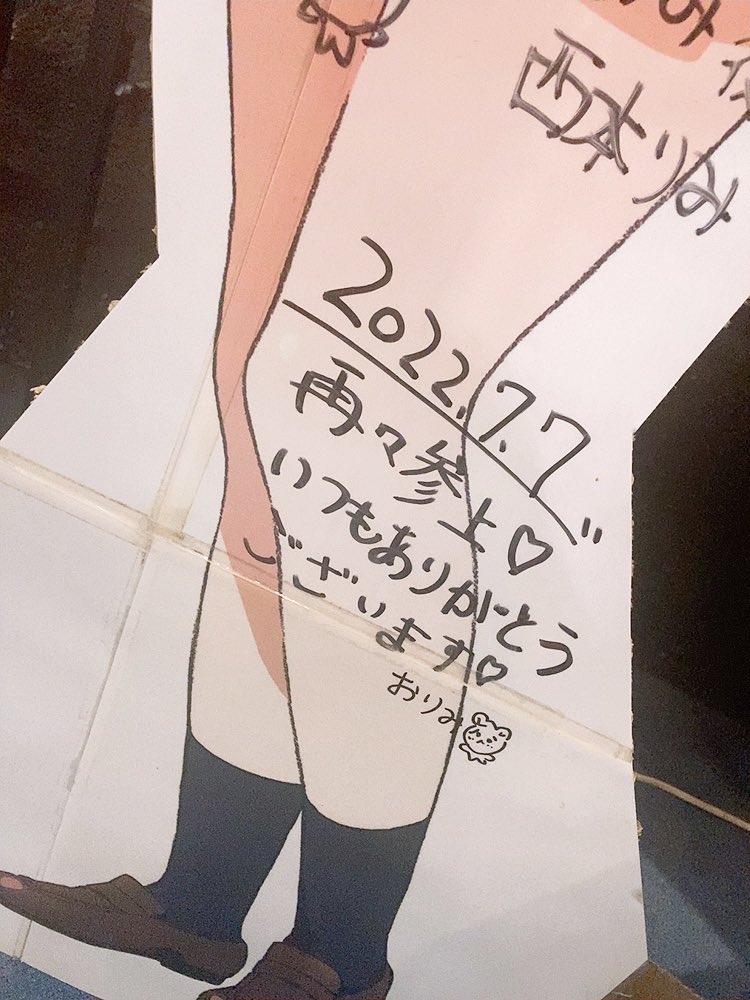 西本りみ
2022.7.7
再々参上♡
いつもありがとう
ございます♡
おりみ